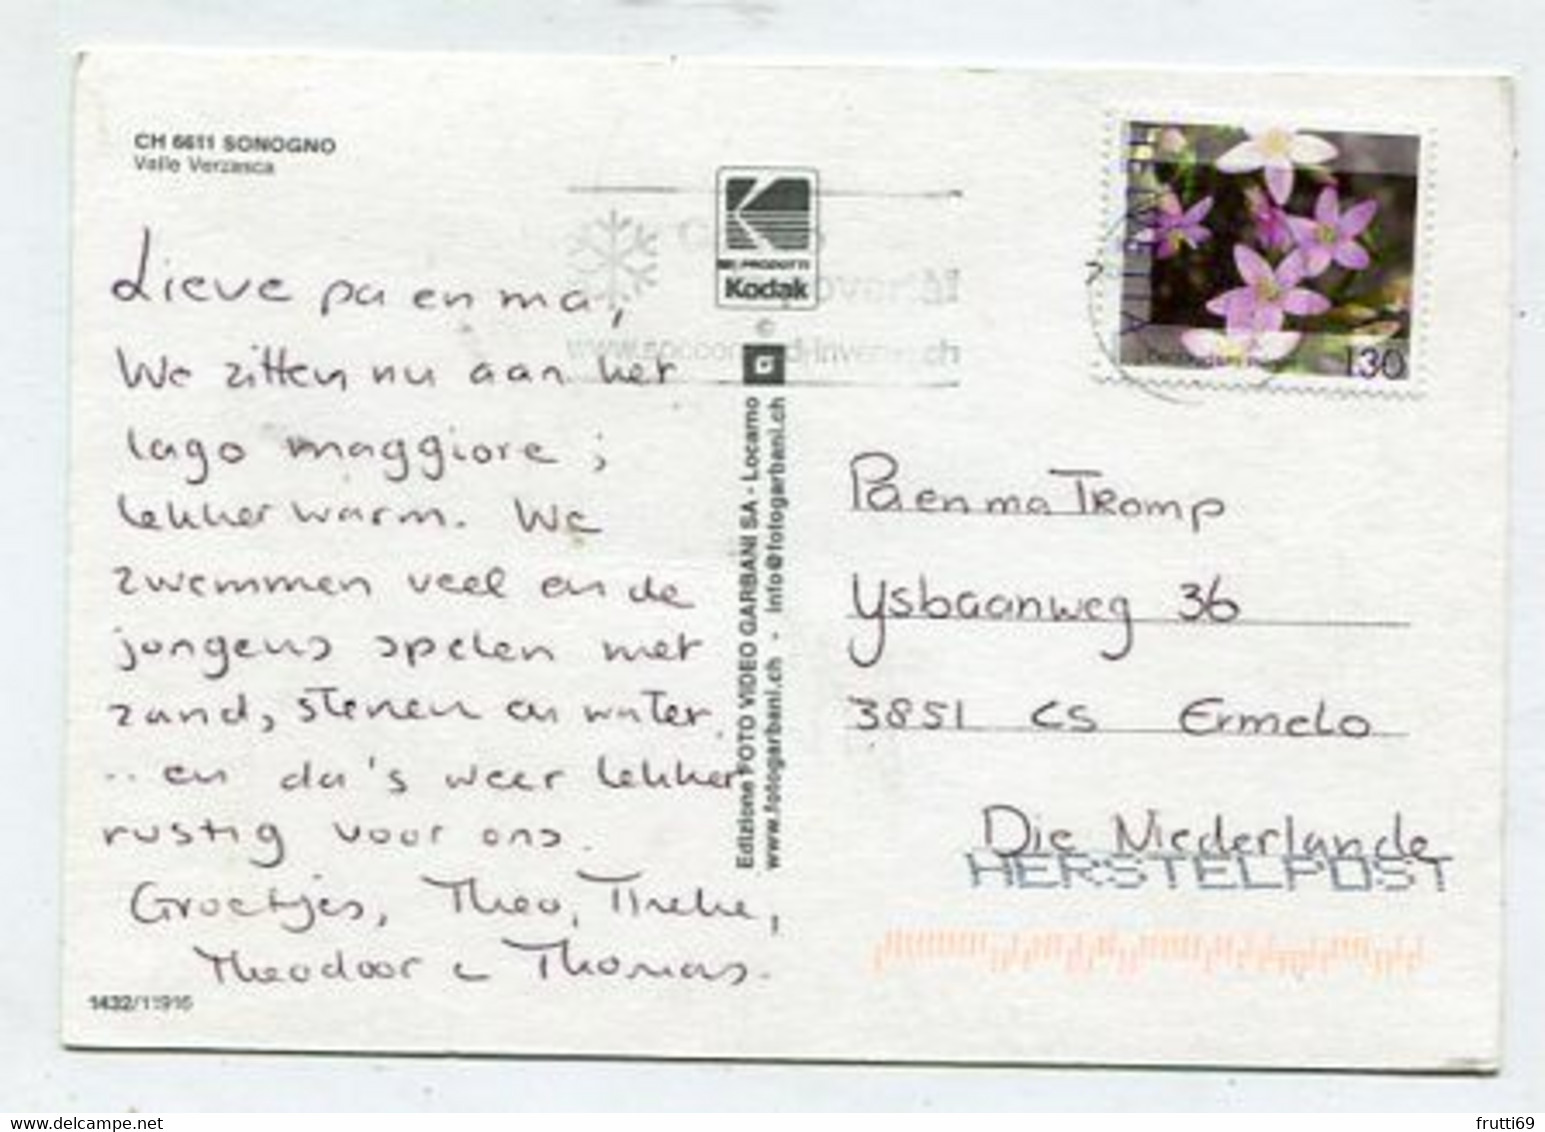 CH 6611 SONOGNO
Valle Verzasca
Lieve pa en ma,
We zitten nu aan het
lago maggiore;
lekker warm. We
zwemmen veel en de
jongens spelen met
zand, stenen en water.
.. en da's weer lekker
rustig voor ons.
Groetjes, Theo, Tineke,
Theodoor & Thomas.
1432/11916
Kodak
©
www.
.ch
Edizione FOTO VIDEO GARBANI SA - Locarno
www.fotogarbani.ch - info@fotogarbani.ch
130
Pa en ma Tromp
Ysbaanweg 36
3851 CS Ermelo
Die Niederlande
HERSTELPOST
frutti69
delcampe.net